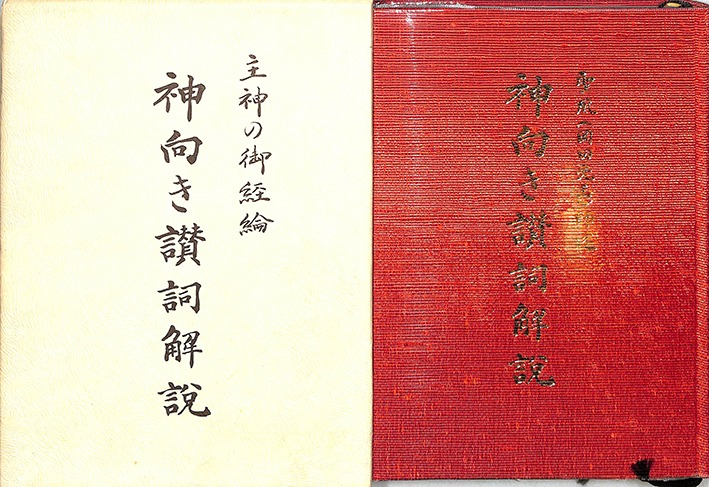 主神の御経綸
神向き讃詞解説
岡田
神向き讃詞解説